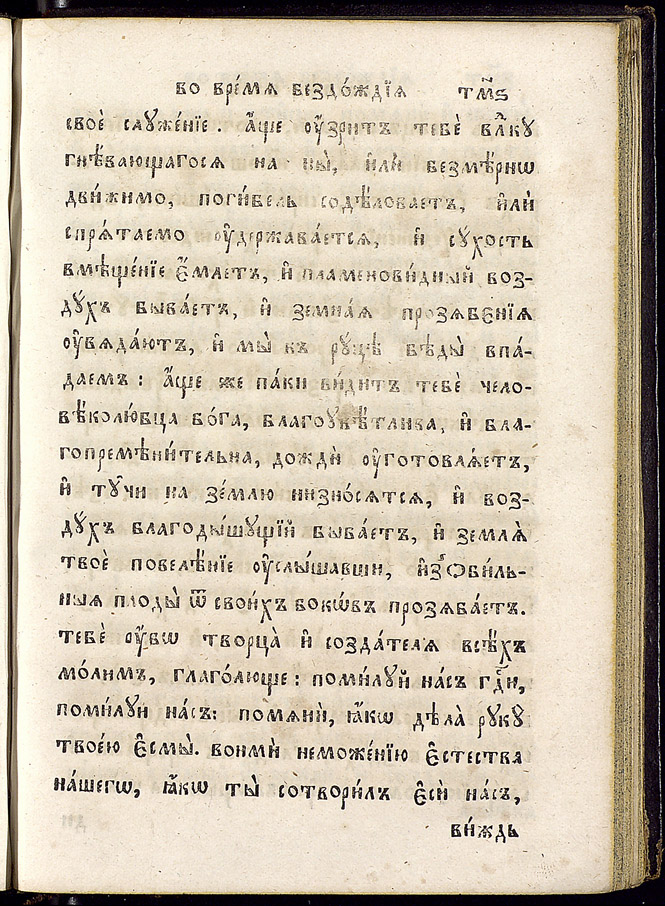 во вре́мѧ бездо́ждїѧ тм҃ѕ
своѐ слꙋже́нїе. А҆́ще ᲂу҆́зритъ тебѐ влⷣкꙋ
гнѣ́вающагосѧ на ны̀, и҆лѝ безмѣ́рнѡ
дви́жимо, поги́бель содѣ́ловаетъ, и҆лѝ
спрѧ́таемо ᲂу҆держава́етсѧ, и҆ сꙋ́хость
вмѣще́нїе є҆́маетъ, и҆ пламенови́дный воз-
дꙋ́хъ быва́етъ, и҆ земна́ѧ прозѧбє́нїѧ
ᲂу҆вѧда́ютъ, и҆ мы̀ къ рꙋцѣ̀ бѣды̀ впа́-
даемъ: А҆́ще же па́ки ви́дитъ тебѐ чело-
вѣколю́бца бо́га, благоꙋвѣ́тлива, и҆ бла-
гопремѣни́тельна, дождѝ ᲂу҆готовлѧ́етъ,
и҆ тꙋ̑чи на зе́млю низно́сѧтсѧ, и҆ воз-
дꙋ́хъ благоды́шꙋщїй быва́етъ, и҆ землѧ̀
твоѐ повелѣ́нїе ᲂу҆слы́шавши, и҆зѻби́ль-
ныѧ плоды̀ ѿ свои́хъ бокѡ́въ прозѧба́етъ.
тебѐ ᲂу҆́бѡ творца̀ и҆ созда́телѧ всѣ́хъ
мо́лимъ, глаго́люще: поми́лꙋй на́съ гдⷭ҇и,
поми́лꙋй на́съ: помѧнѝ, ꙗ҆́кѡ дѣ́ла рꙋкꙋ̀
твоє́ю є҆смы̀. вонмѝ неможе́нїю є҆стества̀
на́шегѡ, ꙗ҆́кѡ ты̀ сотвори́лъ є҆сѝ на́съ,
ви́ждь